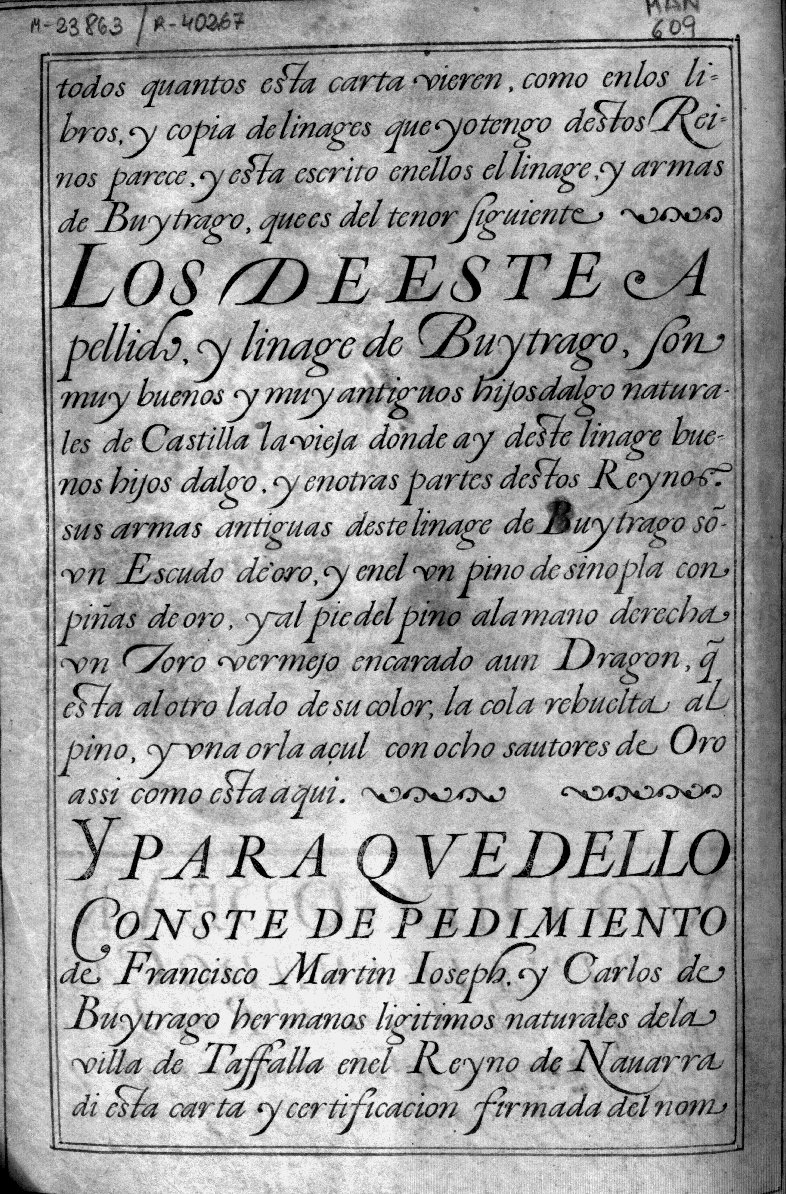 M-23863 / R-40267
MAN
609
todos quantos esta carta vieren, como enlos li-
bros, y copia de linages que yo tengo destos Rei-
nos parece, y esta escrito enellos el linage, y armas
de Buytrago, que es del tenor siguiente
LOS DE ESTE A
pellido, y linage de Buytrago, son
muy buenos y muy antiguos hijosdalgo natura-
les de Castilla la vieja donde ay deste linage bue-
nos hijos dalgo, y en otras partes destos Reynos.
sus armas antiguas deste linage de Buytrago sõ-
vn Escudo de oro, y enel vn pino de sinopla con
piñas de oro, y al pie del pino ala mano derecha
vn Toro vermejo encarado a un Dragon, q̃
esta al otro lado de su color, la cola rebuelta al
pino, y vna orla açul con ocho sautores de Oro
assi como esta aqui.
Y PARA QVE DELLO
CONSTE DE PEDIMIENTO
de Francisco Martin Ioseph, y Carlos de
Buytrago hermanos ligitimos naturales dela
villa de Taffalla enel Reyno de Nauarra
di esta carta y certificacion firmada del nom